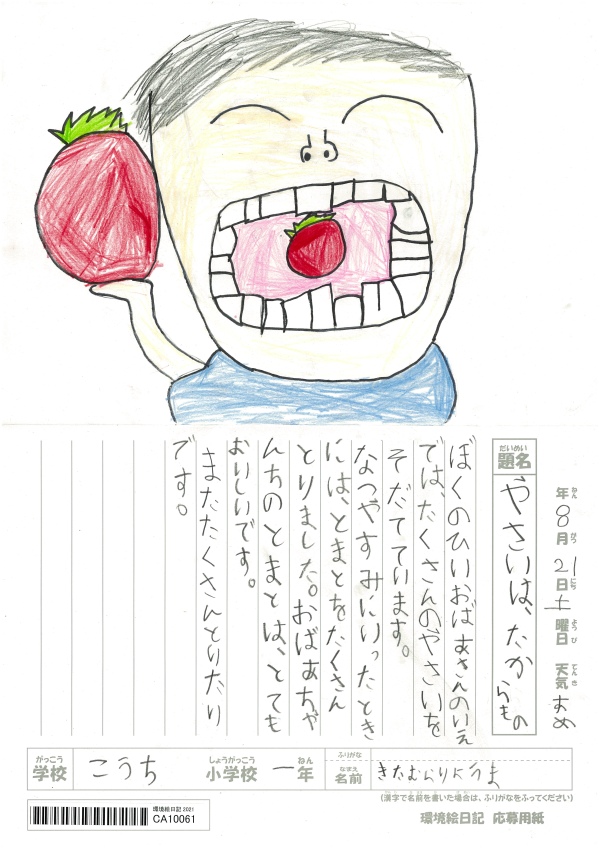 年 8月 21日 土曜日 天気 あめ
ねん がつ にち ようび てんき
だいめい
題名 やさいは、たからもの
ぼくのひいおばあさんのいえ
では、たくさんのやさいを
そだてています。
なつやすみにいったとき
には、とまとをたくさん
とりました。おばあちゃ
んちのとまとは、とても
おいしいです。
またたくさんとりたい
です。
がっこう しょうがっこう ねん ふりがな
学校 こうち 小学校 一年 なまえ 名前 きたむら
(漢字で名前を書いた場合は、ふりがなをふってください)
環境絵日記 2021
CA10061
環境絵日記 応募用紙